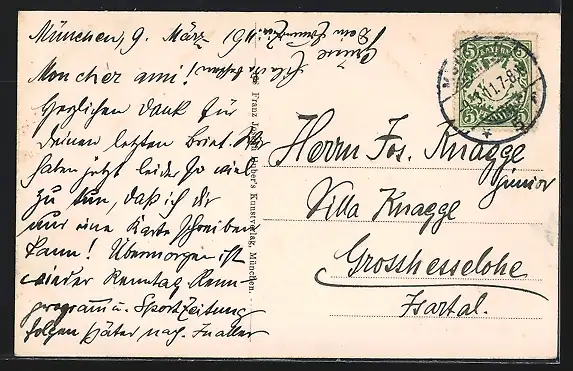 München, 9. März 1911.
Mon cher ami!
Herzlichen Dank für
Deinen letzten Brief. Wir
haben jetzt leider so viel
zu tun, daß ich dir
nur eine Karte schreiben
kann! Übermorgen ist
wieder Renntag. Renn-
programm u. Sportzeitung
folgen später nach. In aller
Grüße
Dein
Franz Josef Huber's Kunstverlag, München.
BAYERN
5 5
5 5
7-8
Herrn Jos. Knagge
junior
Villa Knagge
Grosshesselohe
Isartal.